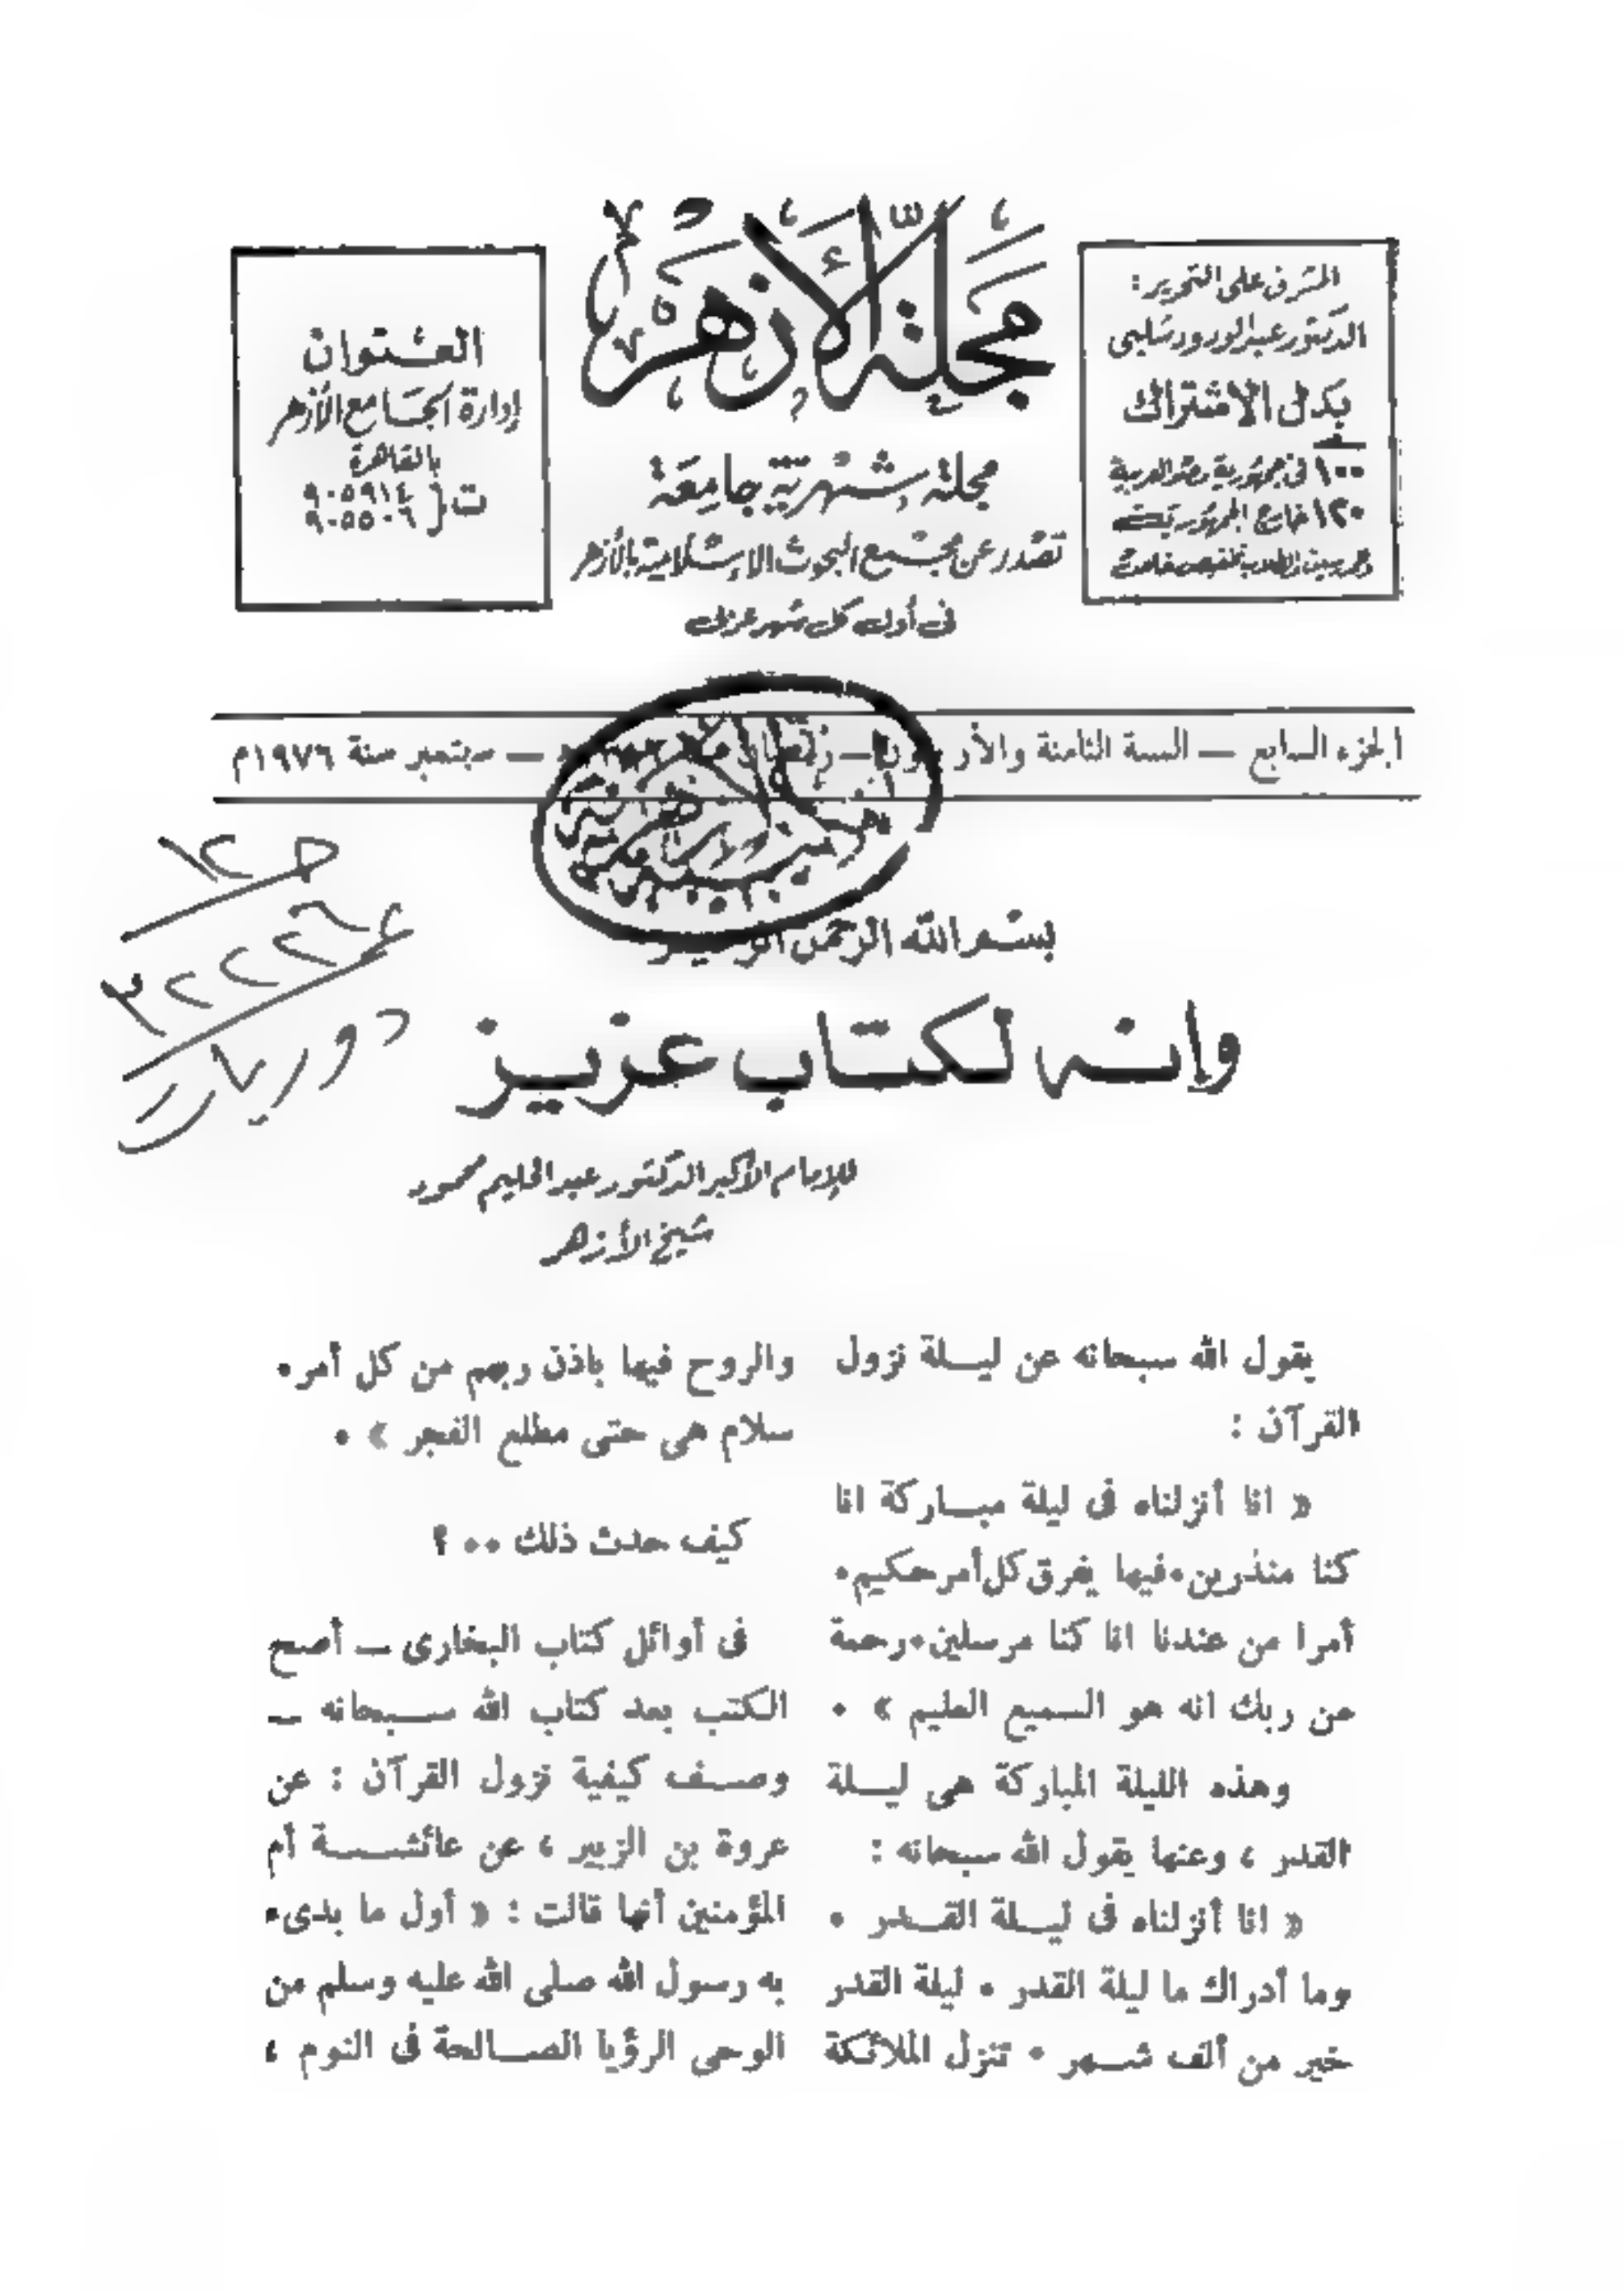 مجلة الأزهر
مجلة شهرية جامعة
تصدر عن مجمع البحوث الإسلامية بالأزهر
فى أول كل شهر عربى
المشرف على التحرير :
الدكتور عبد الودود شلبى
بدل الاشتراك
١٠٠ فى جمهورية مصر العربية
١٢٠ خارج الجمهورية
العنوان
إدارة الجامع الأزهر
بالقاهرة
ت { ٩٠٥٩١٤
٩٠٥٥٠٦
الجزء السابع — السنة الثامنة والأربعون — رمضان — سبتمبر سنة ١٩٧٦م
بسم الله الرحمن الرحيم
دوريات
وانه لكتاب عزيز
للإمام الأكبر الدكتور عبد الحليم محمود
شيخ الأزهر
يقول الله سبحانه عن ليلة نزول
القرآن :
« انا أنزلناه فى ليلة مباركة انا
كنا منذرين٠فيها يفرق كل أمر حكيم٠
أمرا من عندنا انا كنا مرسلين٠رحمة
من ربك انه هو السميع العليم » ٠
وهذه الليلة المباركة هى ليلة
القدر ، وعنها يقول الله سبحانه :
« انا أنزلناه فى ليلة القدر ٠
وما أدراك ما ليلة القدر ٠ ليلة القدر
خير من ألف شهر ٠ تنزل الملائكة
والروح فيها باذن ربهم من كل أمر٠
سلام هى حتى مطلع الفجر » ٠
كيف حدث ذلك ٠٠ ؟
فى أوائل كتاب البخارى — أصح
الكتب بعد كتاب الله سبحانه —
وصف كيفية نزول القرآن : عن
عروة بن الزبير ، عن عائشة أم
المؤمنين أنها قالت : « أول ما بدىء
به رسول الله صلى الله عليه وسلم من
الوحى الرؤيا الصالحة فى النوم ،